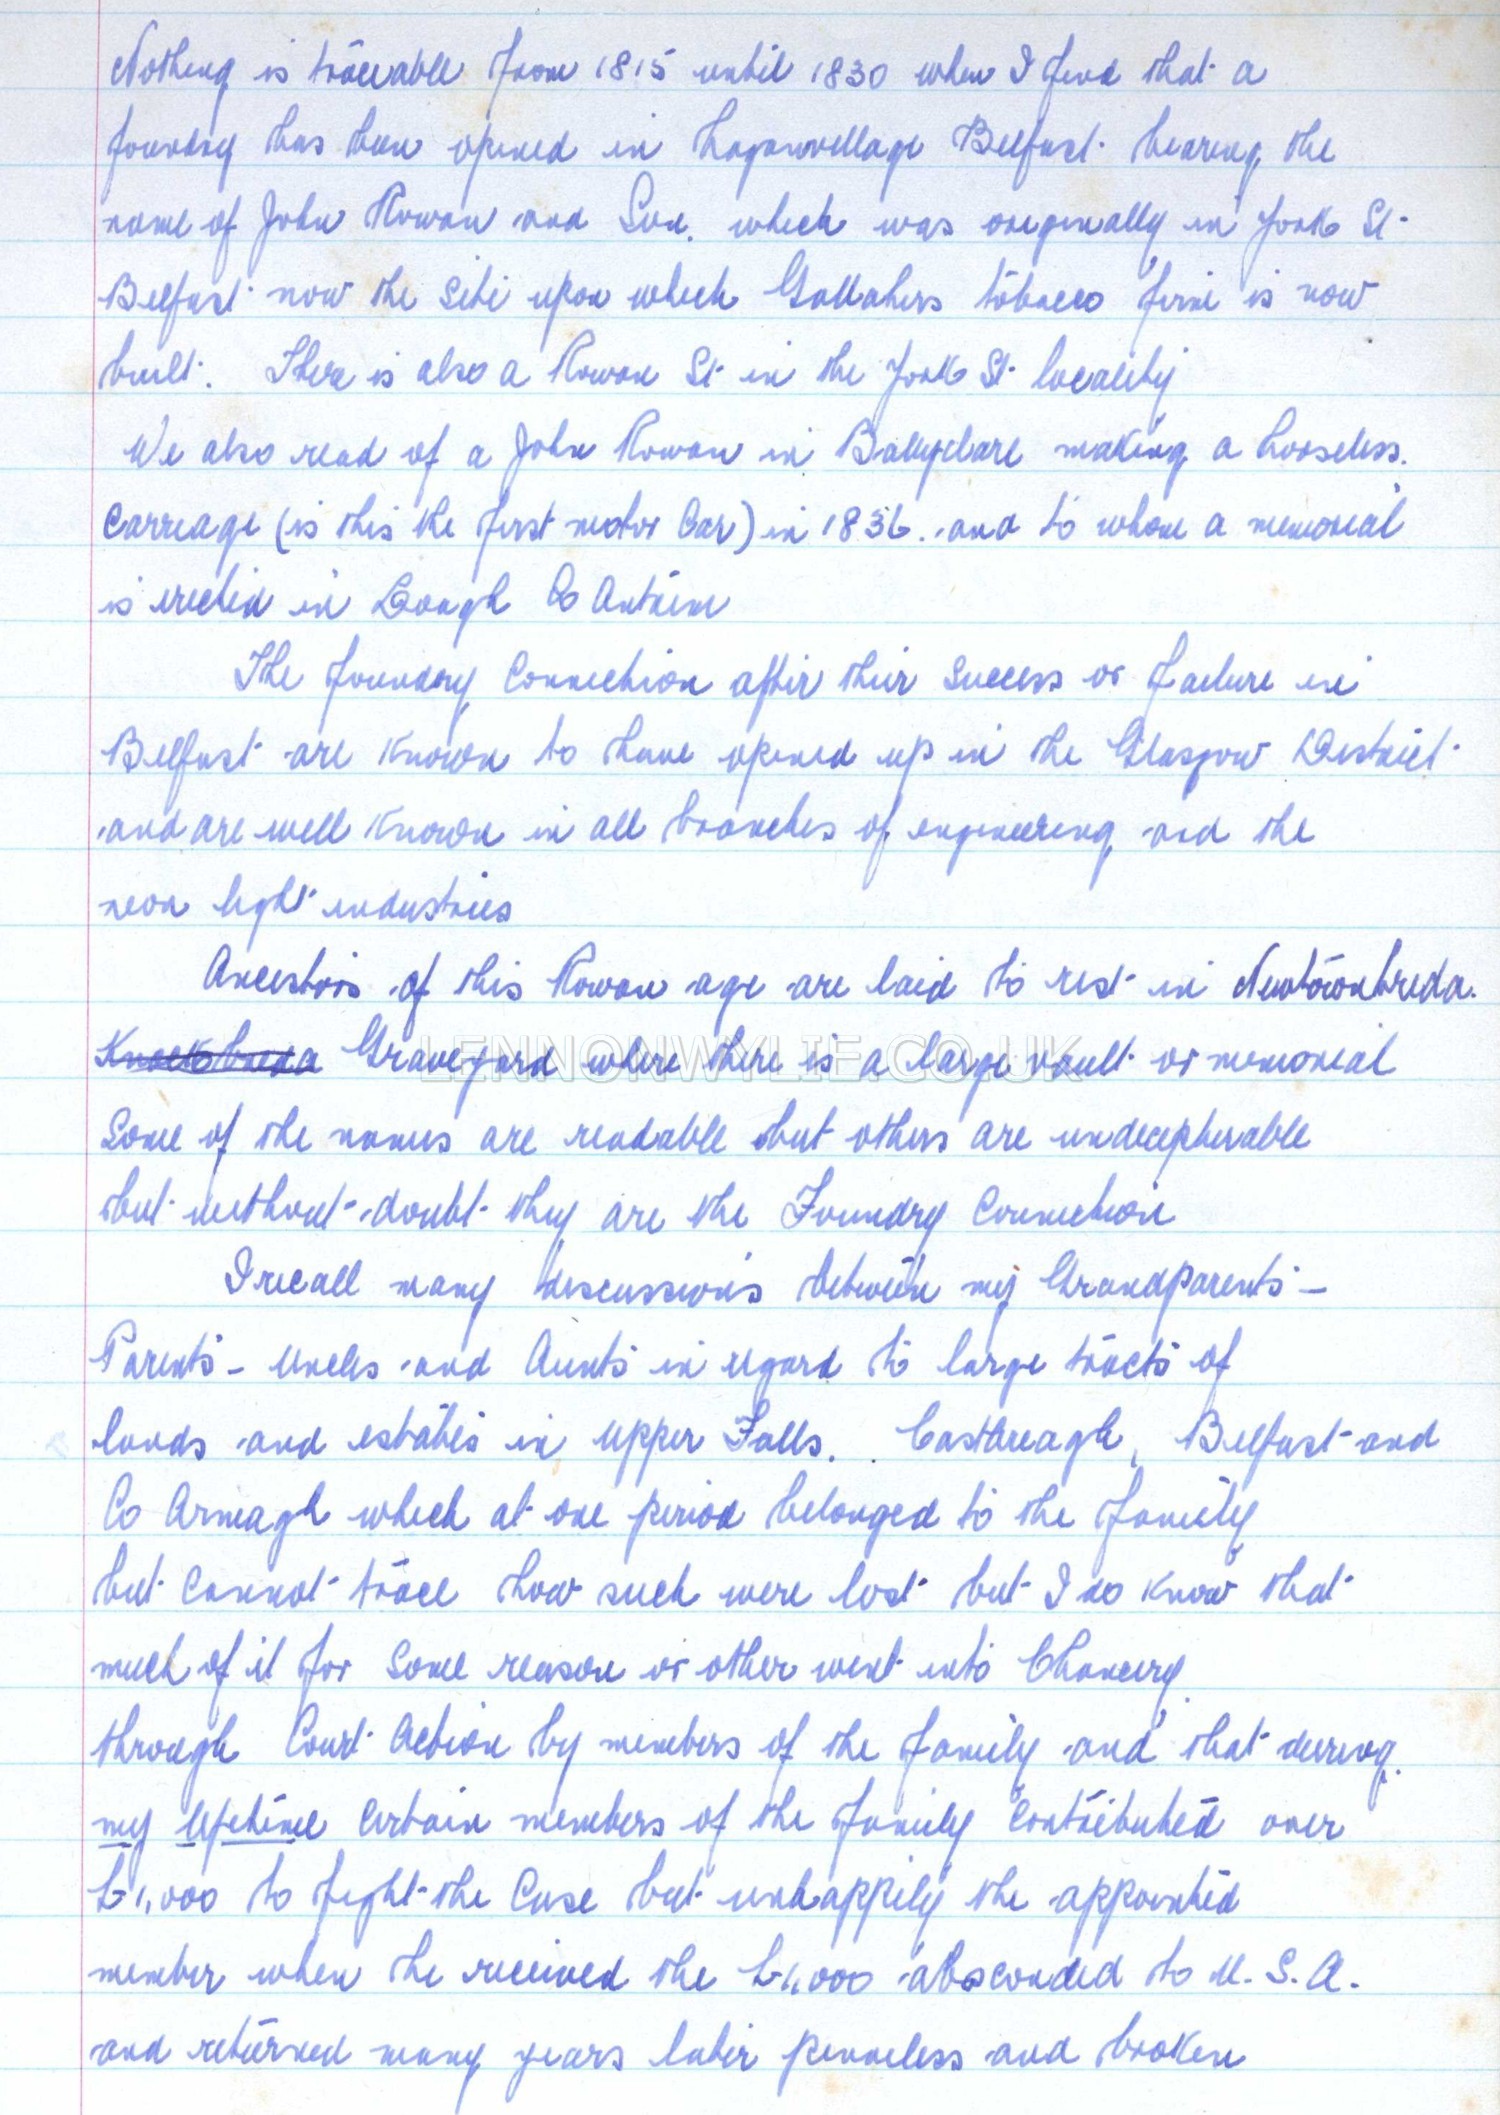 Nothing is traceable from 1815 until 1830 when I find that a
foundry has been opened in Laganvillage Belfast bearing the
name of John Rowan and Son. which was originally in York St
Belfast now the site upon which Gallahers tobacco firm is now
built. There is also a Rowan St in the York St locality
We also read of a John Rowan in Ballyclare making a horseless
Carriage (is this the first motor Car) in 1836. and to whom a memorial
is erected in Doagh Co Antrim
The foundry Connection after their success or failure in
Belfast are known to have opened up in the Glasgow District
and are well known in all branches of engineering and the
neon light industries
Ancestors of this Rowan age are laid to rest in Newtownbreda.
Knockbreda Graveyard where there is a large vault or memorial
LENNONWYLIE.CO.UK
Some of the names are readable but others are undecipherable
but without doubt they are the Foundry Connection
I recall many discussions between my Grandparents -
Parents - Uncles and Aunts in regard to large tracts of
lands and estates in Upper Falls. Castlereagh, Belfast and
Co Armagh which at one period belonged to the family
but Cannot trace how such were lost but I do know that
much of it for some reason or other went into Chancery
through Court Action by members of the family and that during
my lifetime Certain members of the family Contributed over
£1,000 to fight the Case but unhappily the appointed
member when he received the £1,000 absconded to U.S.A.
and returned many years later penneless and broken